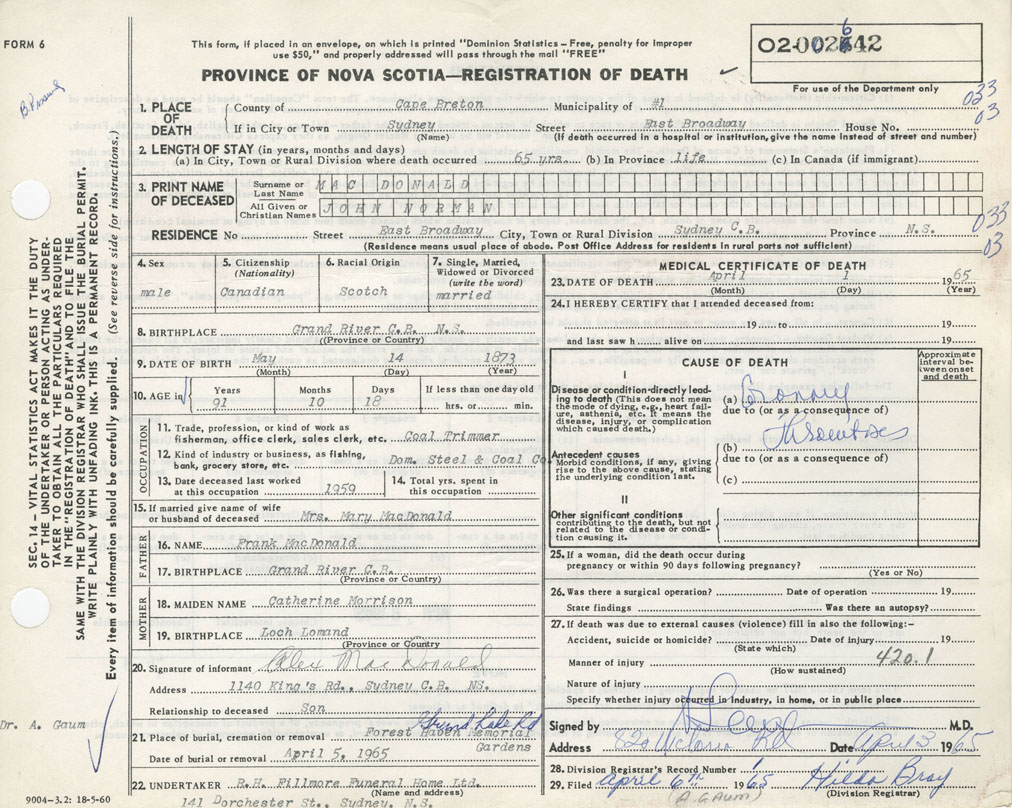 FORM 6
This form, if placed in an envelope, on which is printed "Dominion Statistics - Free, penalty for improper
use $50," and properly addressed will pass through the mail "FREE"
PROVINCE OF NOVA SCOTIA—REGISTRATION OF DEATH
02-002642
For use of the Department only
033
03
1. PLACE OF DEATH
County of Cape Breton Municipality of #1
If in City or Town Sydney Street East Broadway House No.
(Name) (If death occurred in a hospital or institution, give the name instead of street and number)
2. LENGTH OF STAY (in years, months and days)
(a) In City, Town or Rural Division where death occurred 65 yrs. (b) In Province life (c) In Canada (if immigrant)
3. PRINT NAME OF DECEASED
Surname or Last Name MAC DONALD
All Given or Christian Names JOHN NORMAN
033
03
RESIDENCE No Street East Broadway City, Town or Rural Division Sydney C.B. Province N.S.
(Residence means usual place of abode. Post Office Address for residents in rural parts not sufficient)
4. Sex
male
5. Citizenship
(Nationality)
Canadian
6. Racial Origin
Scotch
7. Single, Married,
Widowed or Divorced
(write the word)
married
8. BIRTHPLACE Grand River C.B. N.S.
(Province or Country)
9. DATE OF BIRTH May 14 1873
(Month) (Day) (Year)
10. AGE in
Years Months Days If less than one day old
91 10 18 hrs. or min.
OCCUPATION
11. Trade, profession, or kind of work as
fisherman, office clerk, sales clerk, etc. Coal Trimmer
12. Kind of industry or business, as fishing,
bank, grocery store, etc. Dom. Steel & Coal Co.
13. Date deceased last worked
at this occupation 1959
14. Total yrs. spent in
this occupation
15. If married give name of wife
or husband of deceased Mrs. Mary MacDonald
FATHER
16. NAME Frank MacDonald
17. BIRTHPLACE Grand River C.B.
(Province or Country)
MOTHER
18. MAIDEN NAME Catherine Morrison
19. BIRTHPLACE Loch Lomand
(Province or Country)
20. Signature of informant Alex MacDonald
Address 1140 King's Rd., Sydney C.B. NS.
Relationship to deceased Son
Grand Lake Rd
21. Place of burial, cremation or removal Forest Haven Memorial
Gardens
Date of burial or removal April 5, 1965
22. UNDERTAKER R.H. Fillmore Funeral Home Ltd.
(Name and address)
141 Dorchester St., Sydney, N.S.
MEDICAL CERTIFICATE OF DEATH
23. DATE OF DEATH April 1 1965
(Month) (Day) (Year)
24. I HEREBY CERTIFY that I attended deceased from:
19 to 19
and last saw h alive on 19
CAUSE OF DEATH
Approximate interval between onset and death
I
Disease or condition directly leading to death (This does not mean the mode of dying, e.g., heart failure, asthenia, etc. It means the disease, injury, or complication which caused death.)
(a) Coronary
due to (or as a consequence of)
Thrombosis
Antecedent causes
Morbid conditions, if any, giving rise to the above cause, stating the underlying condition last.
(b)
due to (or as a consequence of)
(c)
II
Other significant conditions
contributing to the death, but not related to the disease or condition causing it.
25. If a woman, did the death occur during
pregnancy or within 90 days following pregnancy?
(Yes or No)
26. Was there a surgical operation? Date of operation 19
State findings Was there an autopsy?
27. If death was due to external causes (violence) fill in also the following:-
Accident, suicide or homicide? Date of injury 19
(State which)
Manner of injury 420.1
(How sustained)
Nature of injury
Specify whether injury occurred in industry, in home, or in public place
Signed by M.D.
Address 820 Victoria Rd Date April 3 1965
28. Division Registrar's Record Number
29. Filed April 6th 1965 Hilda Bray
(A. GAUM) (Division Registrar)
SEC. 14 - VITAL STATISTICS ACT MAKES IT THE DUTY
OF THE UNDERTAKER OR PERSON ACTING AS UNDER-
TAKER TO OBTAIN ALL THE PARTICULARS REQUIRED
IN THE "REGISTRATION OF DEATH" AND TO FILE THE
SAME WITH THE DIVISION REGISTRAR WHO SHALL ISSUE THE BURIAL PERMIT.
WRITE PLAINLY WITH UNFADING INK. THIS IS A PERMANENT RECORD.
Every item of information should be carefully supplied. (See reverse side for instructions.)
Dr. A. Gaum
9004-3.2: 18-5-60